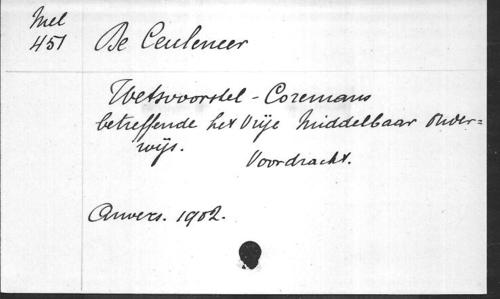 Mel
451
De Ceuleneer
Wetsvoorstel - Coremans
betreffende het Vrije Middelbaar Onder=
wijs.
Voordracht.
Anvers. 1902.